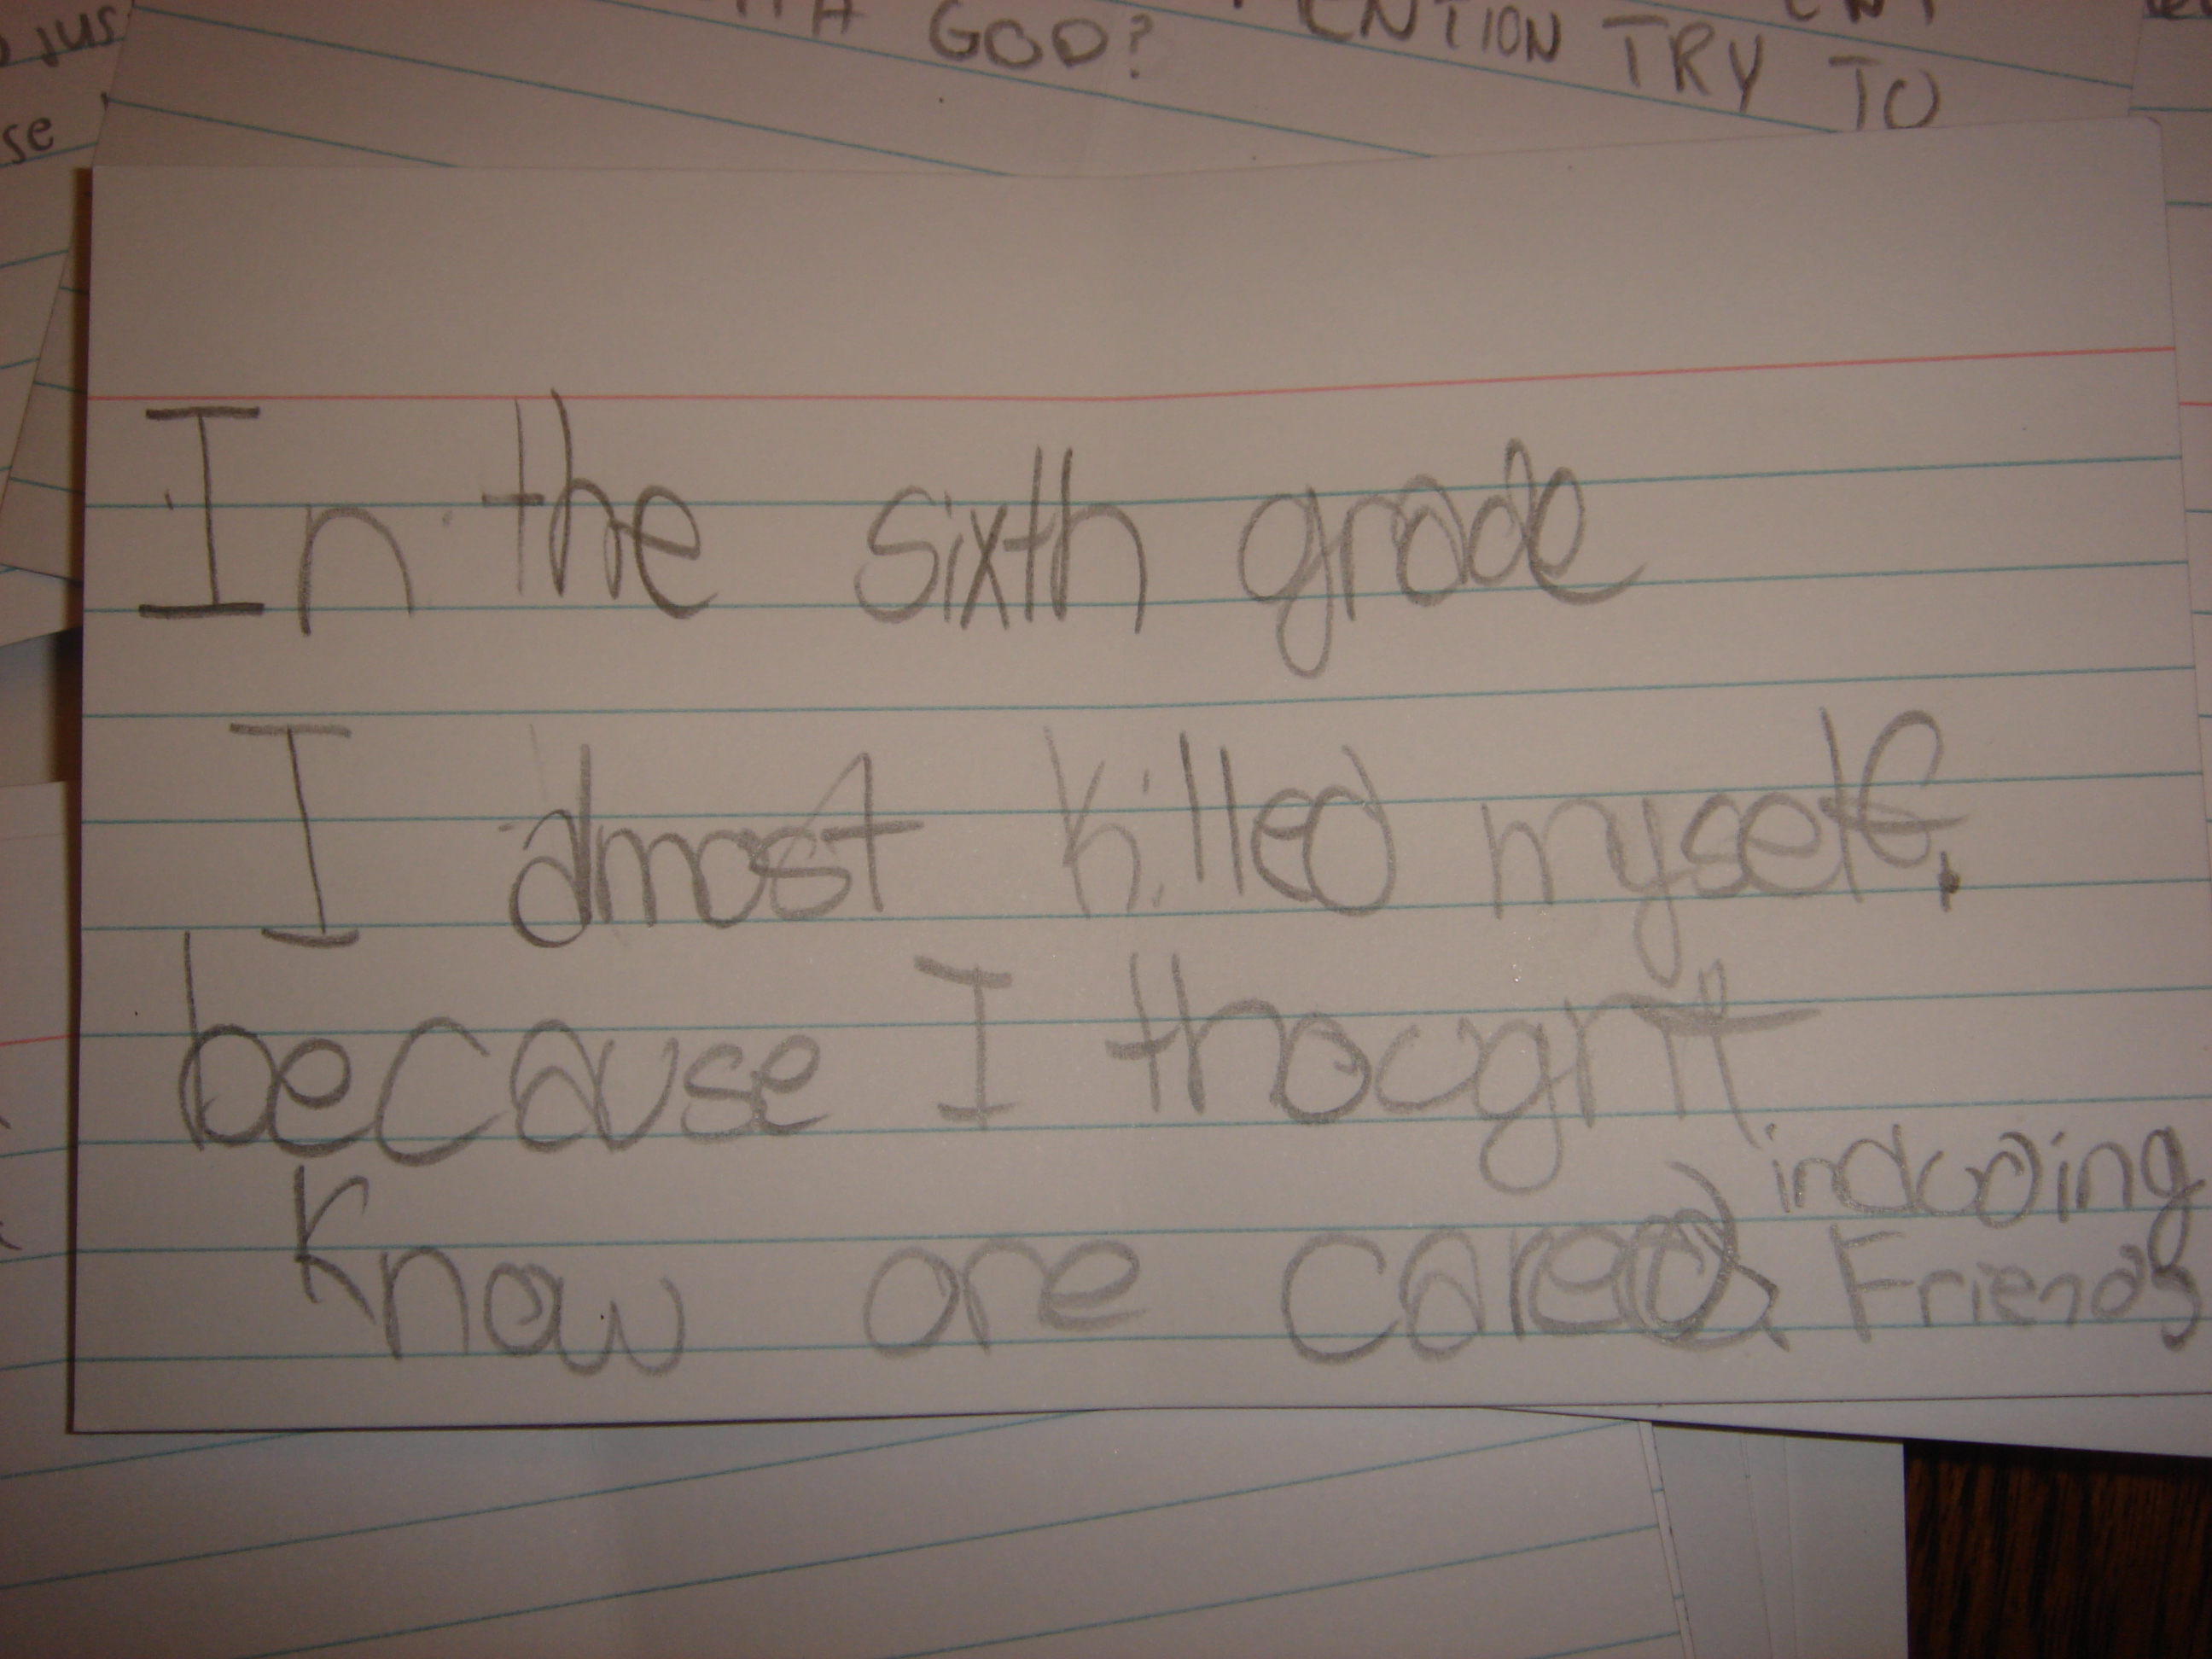 jus
GOD?
ENTION TRY TO
se
In the sixth grade
I almost killed myself.
because I thought
Know one cared including
Friends